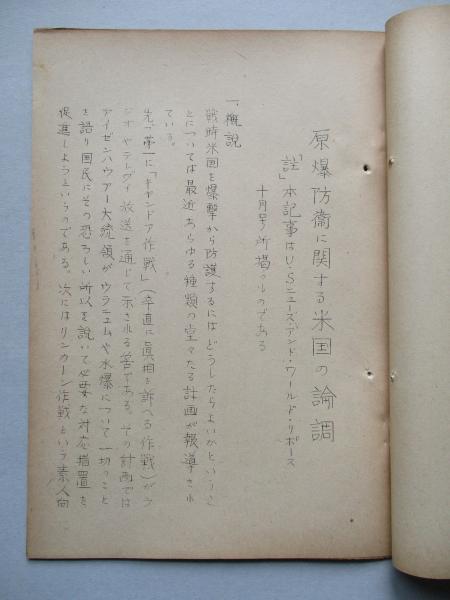 原爆防衛に関する米国の論調
「註」本記事はU.Sニューズ・アンド・ワールド・リポース
十月号所掲のものである
一概説
戦時米国を爆撃から防護するにはどうしたらよいかというこ
とについては最近あらゆる種類の堂々たる計画が報導され
ている。
先づ第一に「キャンドア作戦」(卒直に眞相を訴へる作戦)がラ
ジオやテレヴィ放送を通じて示される筈である。その計画では
アイゼンハウアー大統領がウラニュムや水爆について一切のこと
を語り国民にその恐ろしい所以を説いて必要な対応措置を
促進しようというのである。次にはリンカーン作戦という素人向